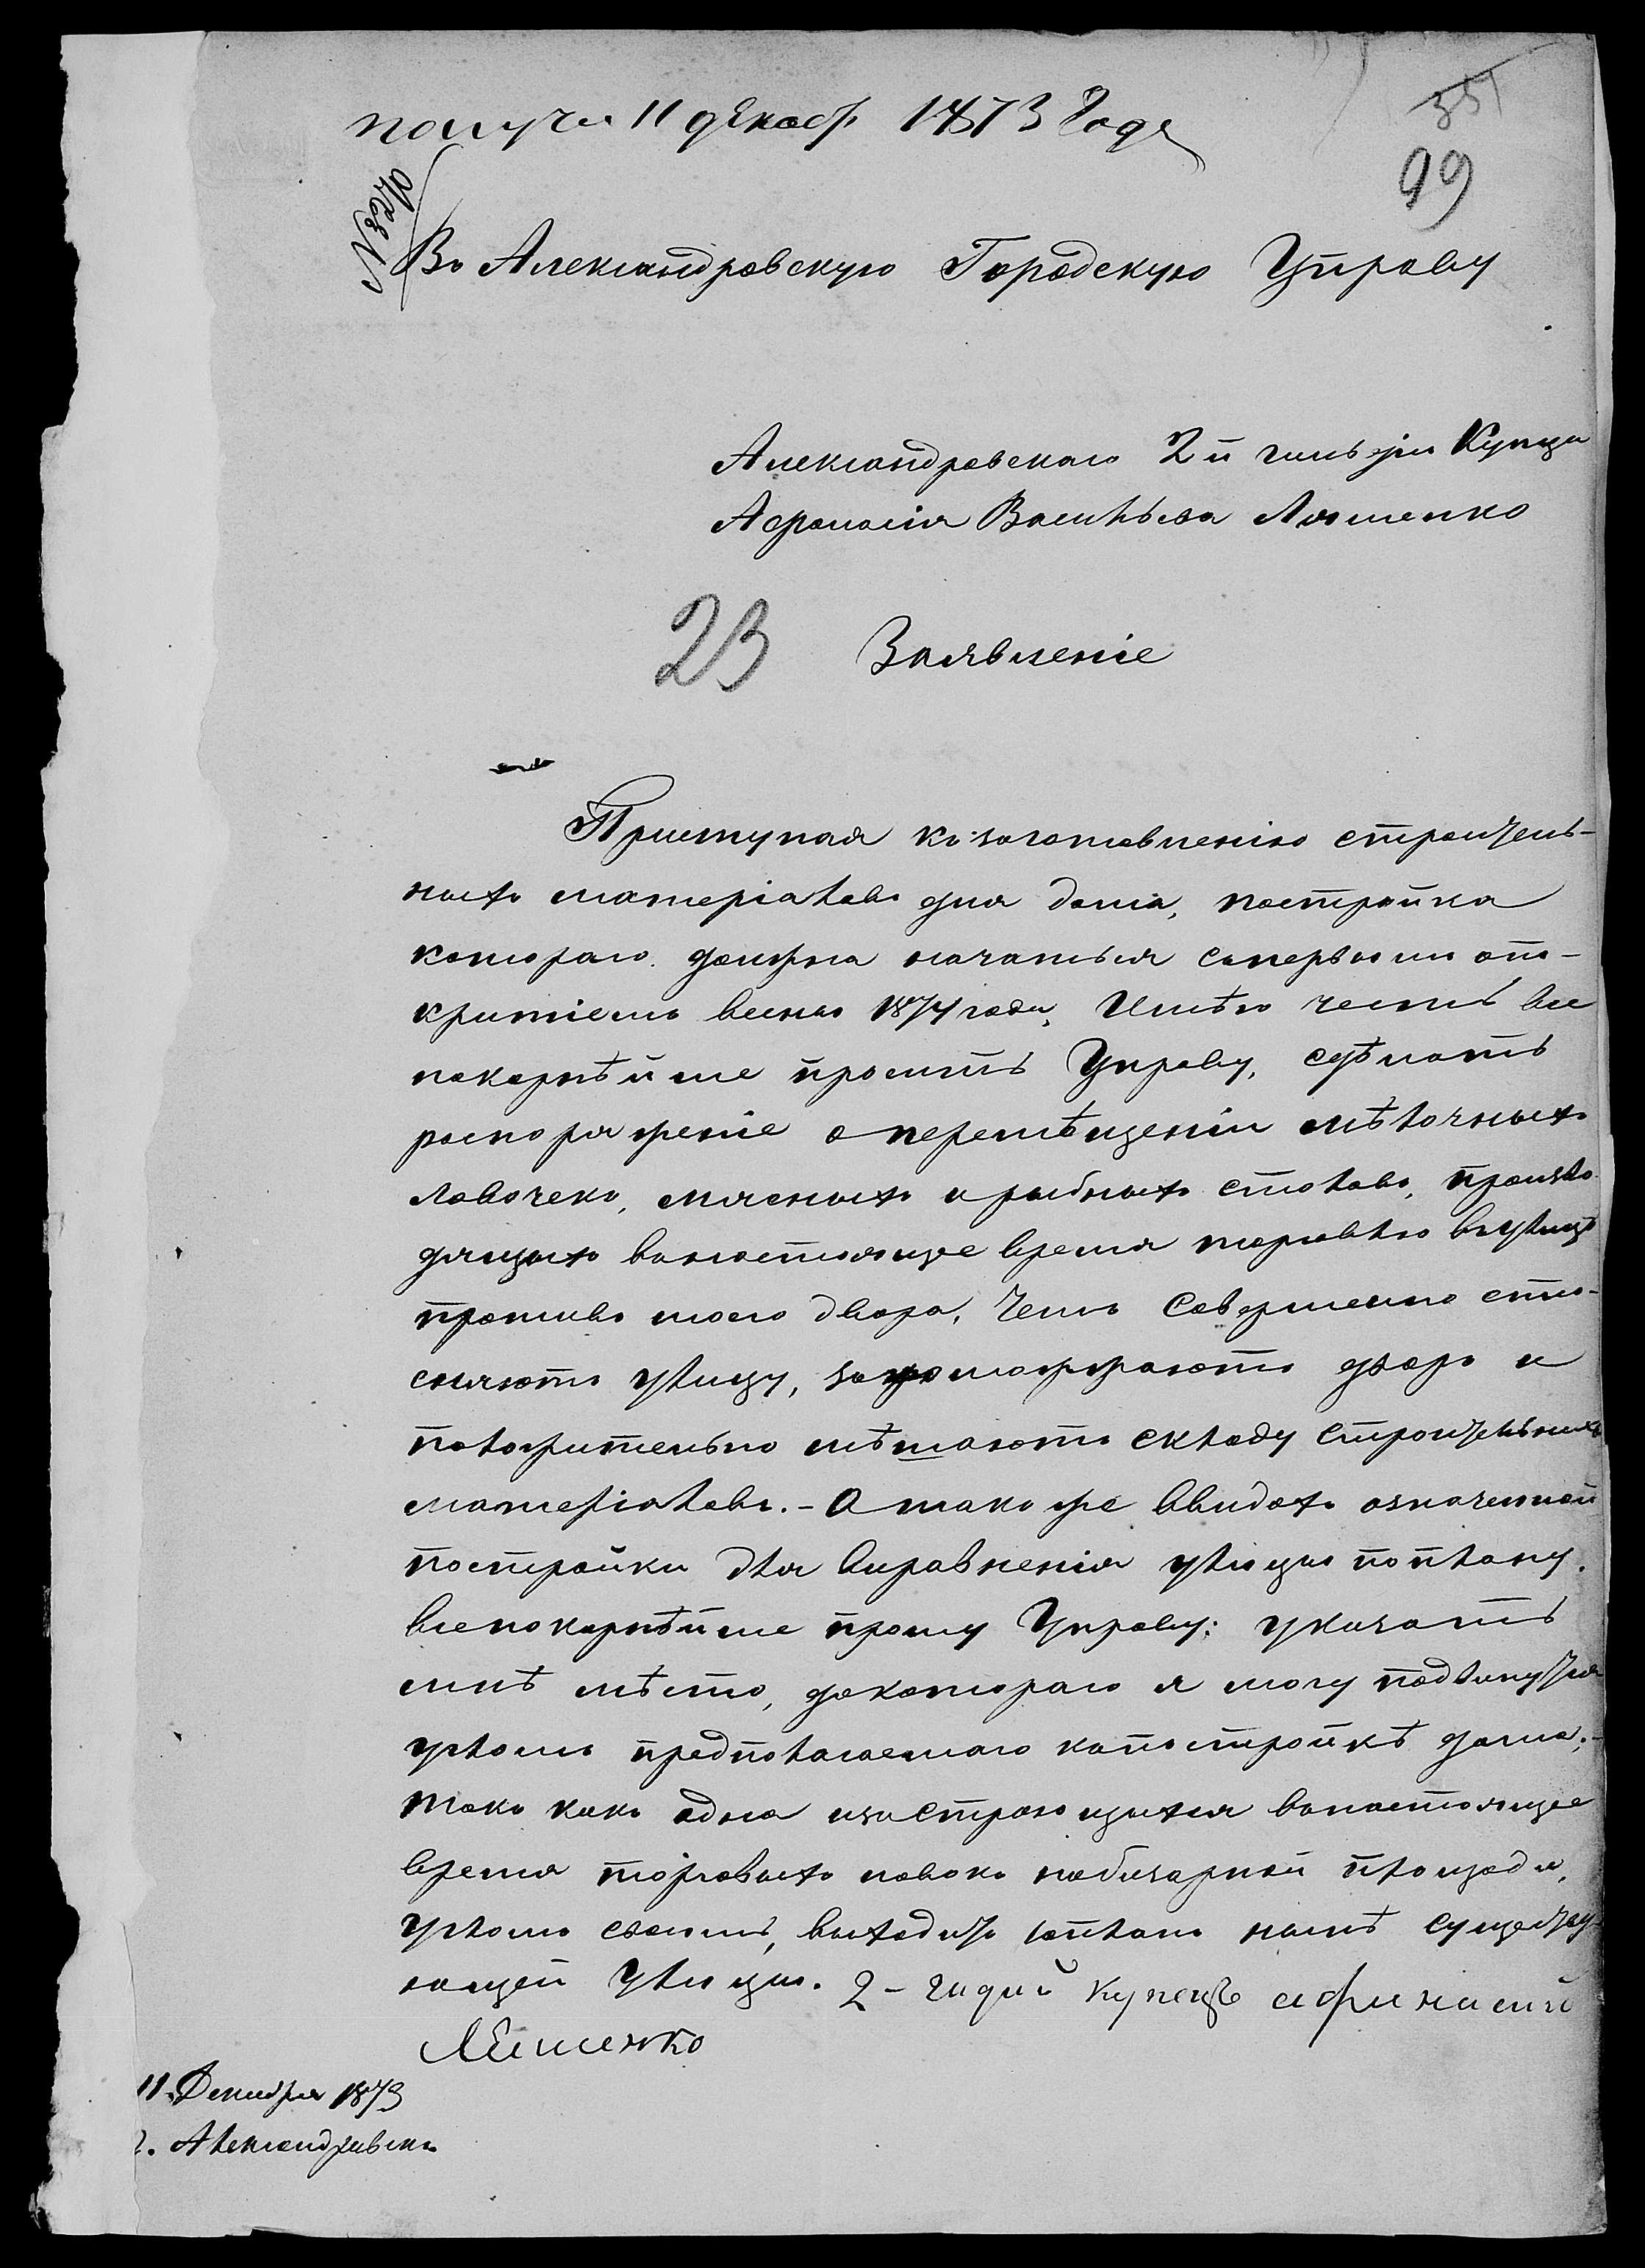 получен 11 декабр 1873 Года
99
Въ Александровскую Городскую Управу
Александровскаго 2й гильдіи Купца
Афанасія Васильева Ляшенко
23 Заявленіе
Приступая къ заготовленію строитель-
ныхъ матеріаловъ для дома, постройка
котораго должна начаться съ первымъ от-
критіемъ весны 1874 года, Имѣю честь все
покорнѣйше просить Управу, сдѣлать
распоряженіе о перемѣщеніи мѣлочныхъ
лавочекъ, мясныхъ и рыбныхъ столовъ, произво-
дящихъ въ настоящее время торговлю въ улицѣ
противъ моего двора, Чемъ Совершенно сте-
сняютъ улицу, дворъ и
положительно мѣшаютъ складу строительныхъ
матеріаловъ. - А также ввидахъ означенной
постройки для виравненія улицы по плану.
всепокорнѣйше прошу Управу: указать
мнѣ мѣсто, до котораго я могу подвинуться
угломъ предполагаемаго къ постройкѣ дома;-
такъ какъ одна изъ строющихся въ настоящее
время торговыхъ лавокъ на базарной площади,
угломъ своимъ, выходитъ нынѣ существу-
ющей улицы. 2-гилдий Купецъ афанасий
Лешенко
11 Декабря 1873
г. Александровскъ